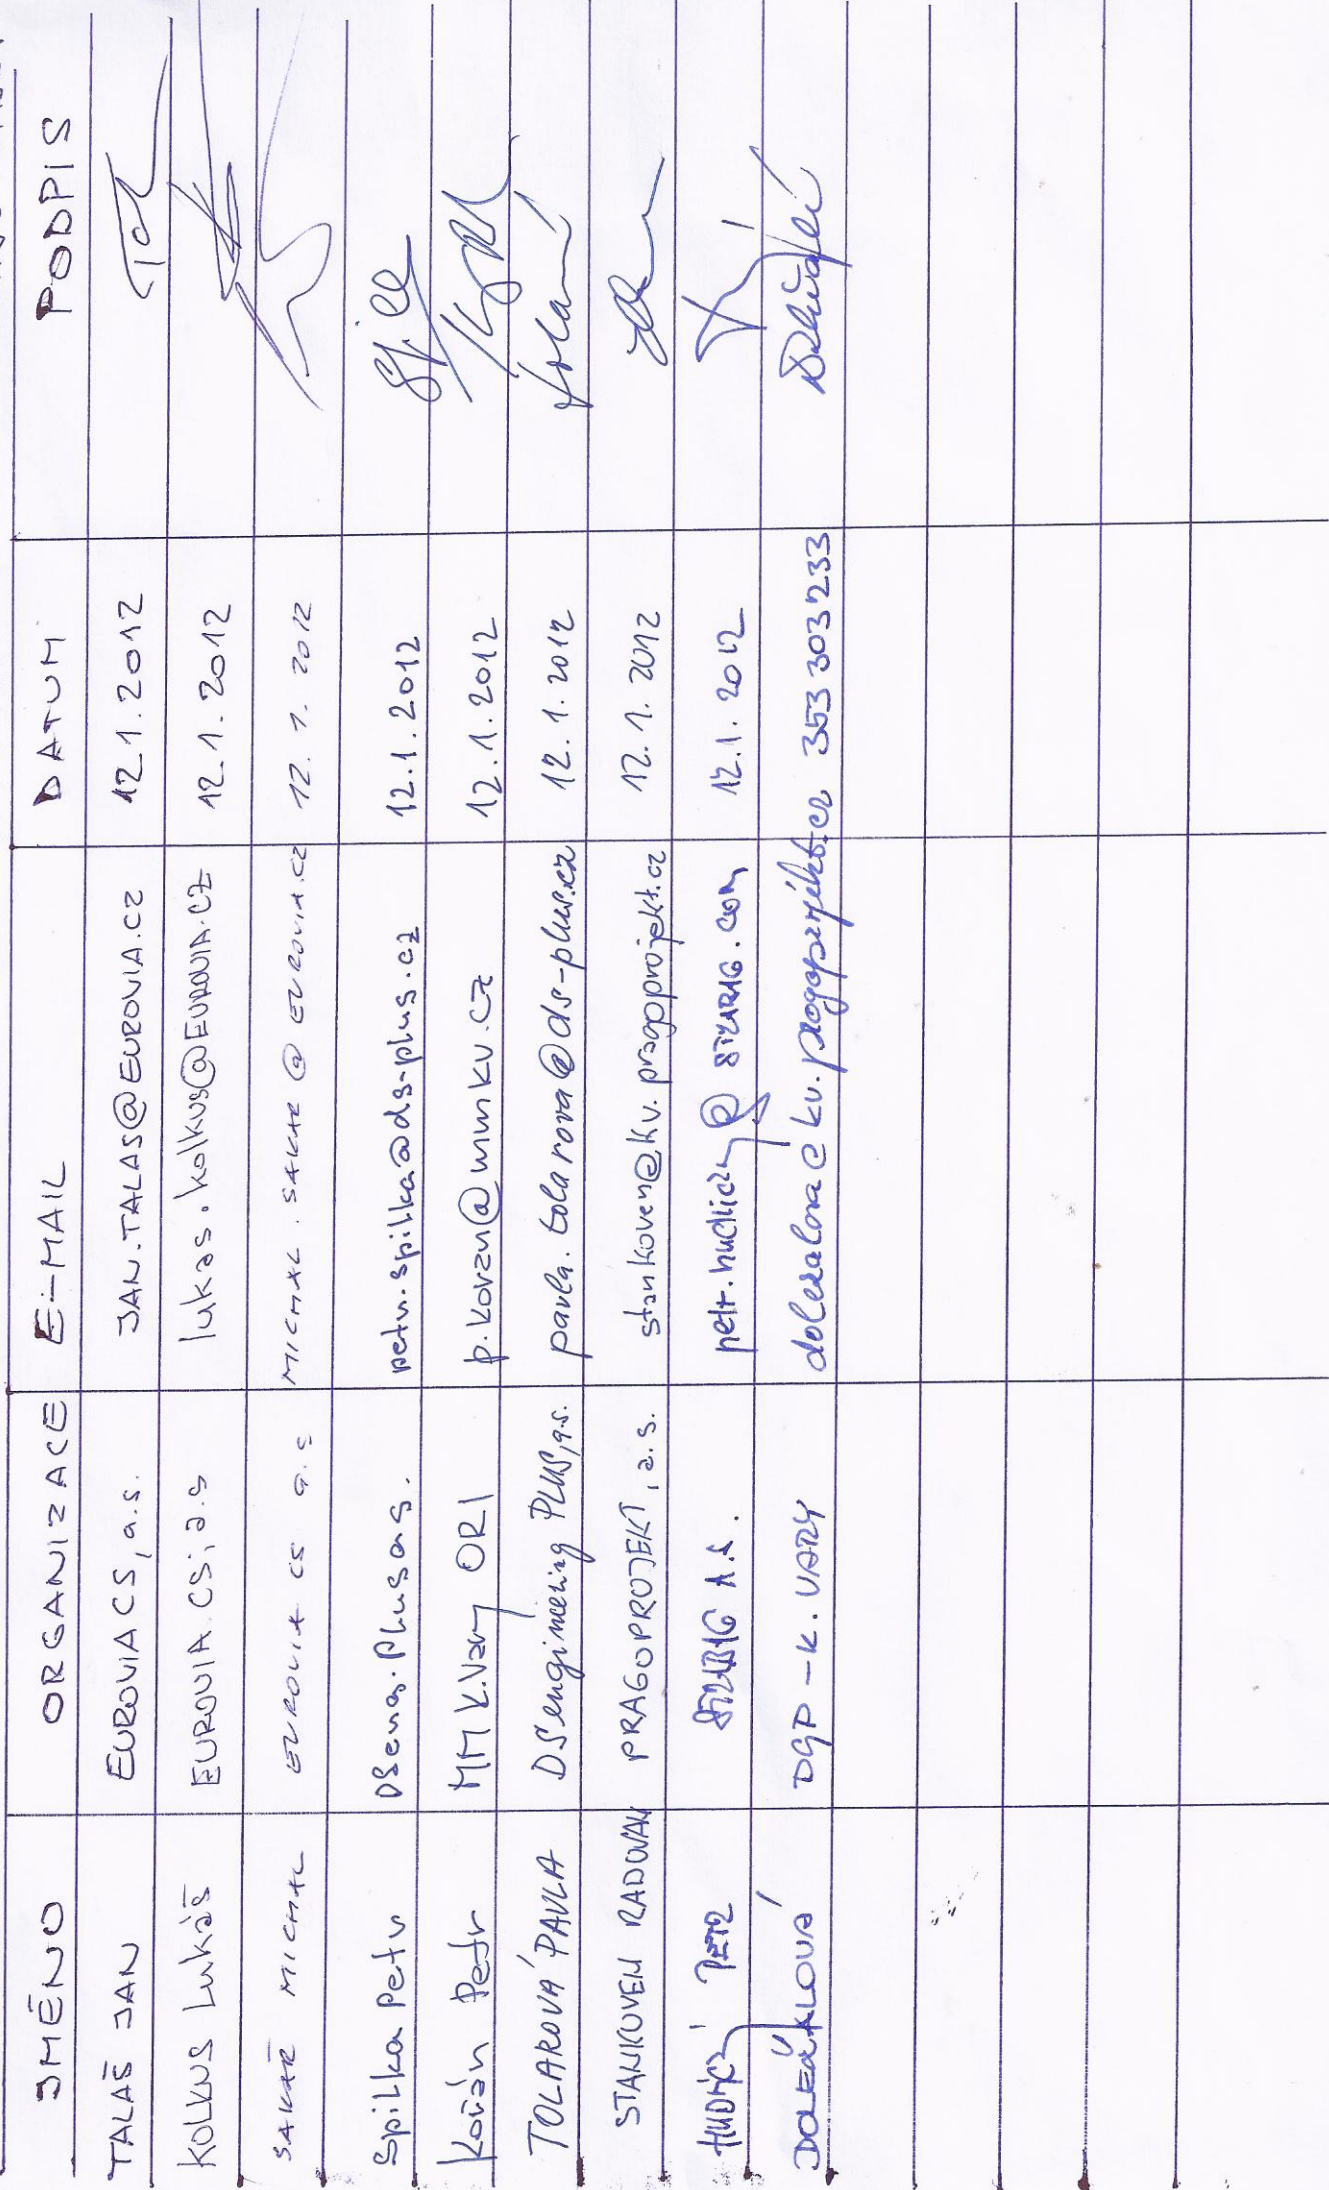 JMÉNO ORGANIZACE E-MAIL DATUM PODPIS
TALAŠ JAN EUROVIA CS, a.s. JAN.TALAS@EUROVIA.CZ 12.1.2012
KOLKUS Lukáš EUROVIA CS, a.s lukas.kolkus@EUROVIA.CZ 12.1.2012
SAKAŘ MICHAL EUROVIA CS a.s MICHAL.SAKAR@EUROVIA.CZ 12.1.2012
Spilka Petr petr.spilka@ds-plus.cz 12.1.2012
Petr MM K.Vary ORI 12.1.2012
TOLAROVÁ PAVLA DSengineering PLUS, a.s. pavla.tolarova@ds-plus.cz 12.1.2012
STANKOVEN RADOVAN PRAGOPROJEKT, a.s. stankoven@kv.pragoprojekt.cz 12.1.2012
PETR 12.1.2012
K.VARY dolezalova@kv.pragoprojekt.cz 353 303 233